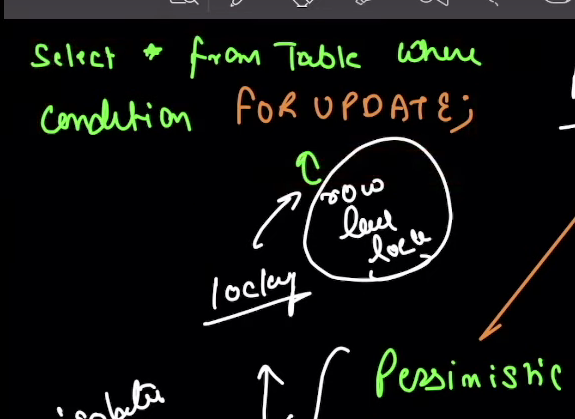 Select * from Table where
condition FOR UPDATE;
row
level
lock
Pessimistic